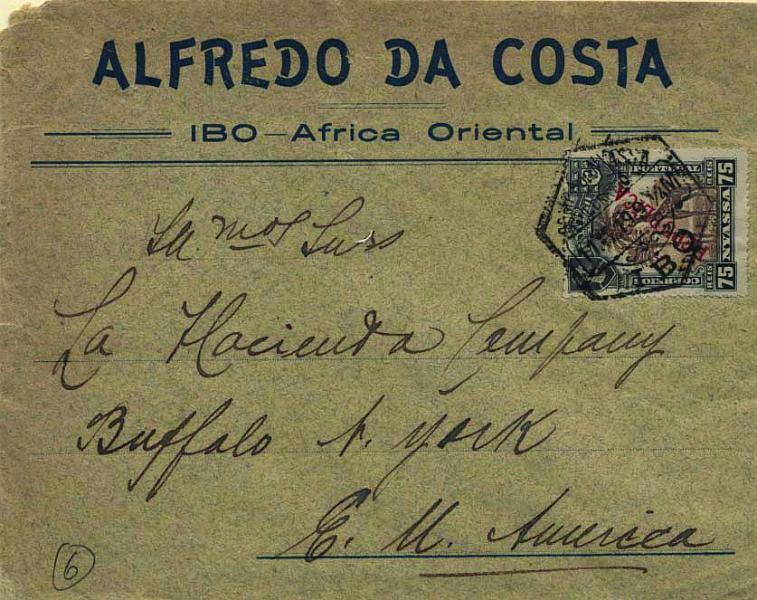 ALFREDO DA COSTA
IBO - Africa Oriental
75 NYASSA 75
REIS REIS
CORREIOS
PORTUGAL
REPUBLICA
IBO
Ill.mos Snrs
La Hacienda Company
Buffalo N. York
E. U. America
6